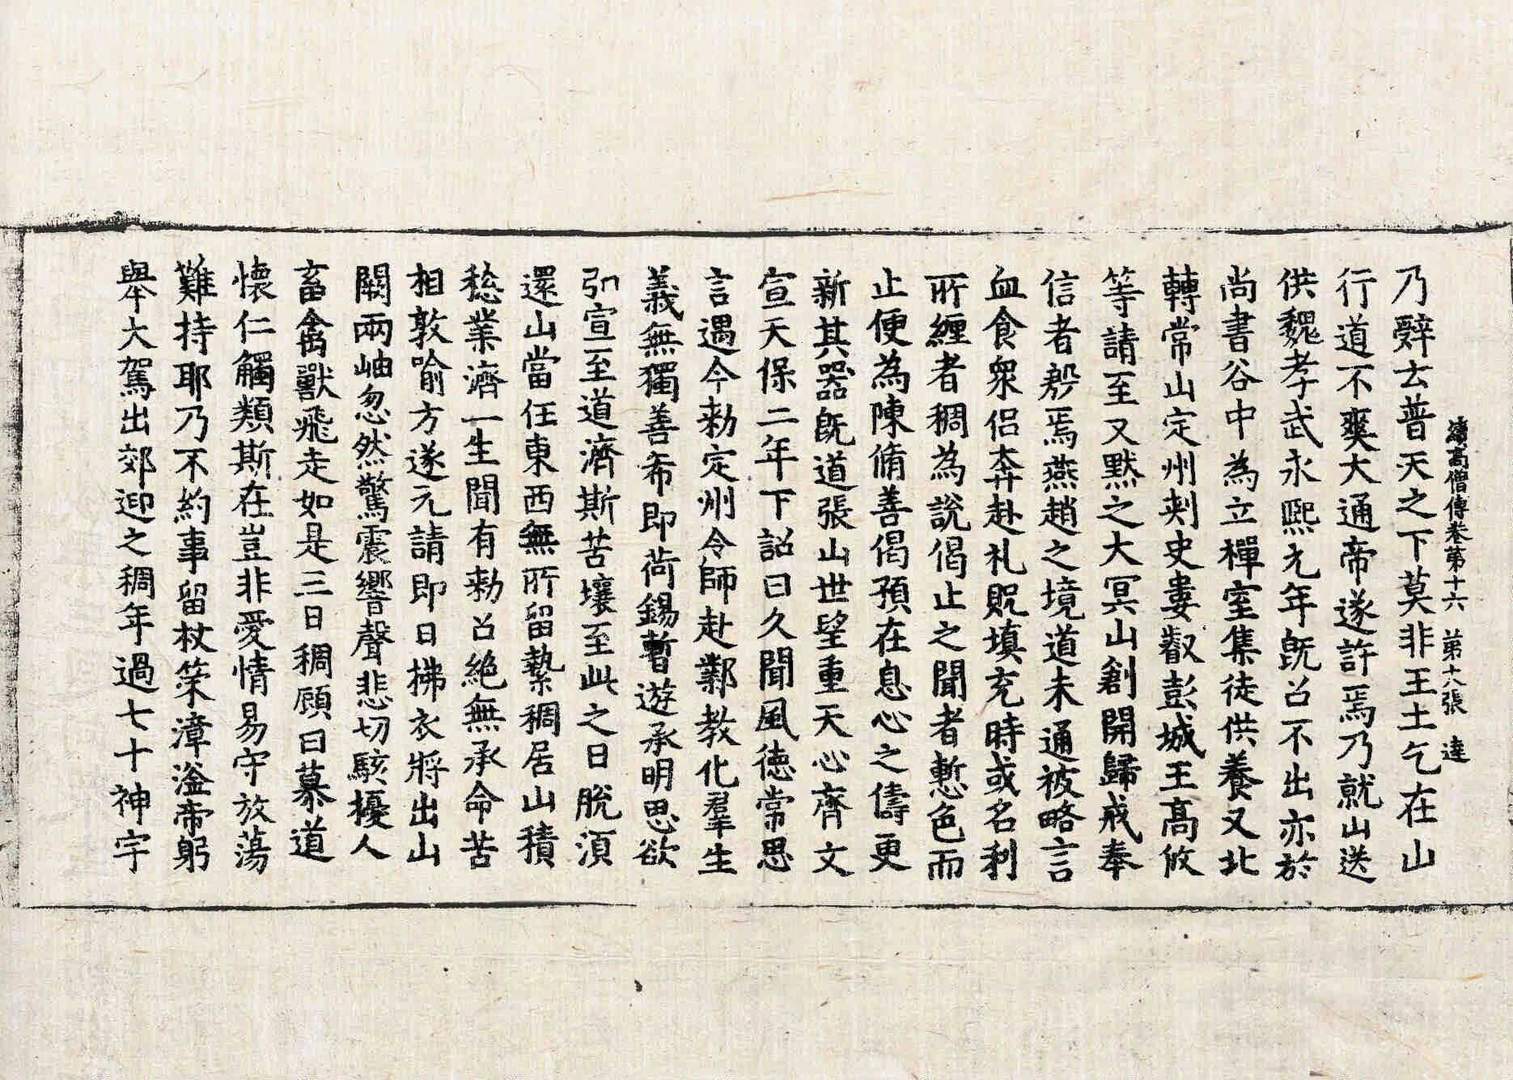 續高僧傳卷第十六　第十八張　達
乃辤去普天之下莫非王土乞在山
行道不爽大通帝遂許焉乃就山送
供魏孝武永熙元年旣召不出亦於
尚書谷中為立禪室集徒供養又北
轉常山定州刾史婁叡彭城王高攸
等請至又默之大冥山創開歸戒奉
信者𣪞焉燕趙之境道未通被略言
血食衆侣奔赴礼貺填充時或名利
所纏者稠為說偈止之聞者慙色而
止便為陳脩善偈預在息心之儔更
新其器旣道張山世望重天心齊文
宣天保二年下詔曰久聞風德常思
言遇今勑定州令師赴鄴教化羣生
義無獨善希即荷錫暫遊承明思欲
弘宣至道濟斯苦壤至此之日脫須
還山當任東西無所留縶稠居山積
稔業濟一生聞有勑召絕無承命苦
相敦喻方遂元請即日拂衣將出山
闕兩岫忽然驚震響聲悲切駭擾人
畜禽獸飛走如是三日稠顧曰慕道
懷仁觸類斯在豈非愛情易守放蕩
難持耶乃不約事留杖策漳滏帝躬
舉大駕出郊迎之稠年過七十神宇